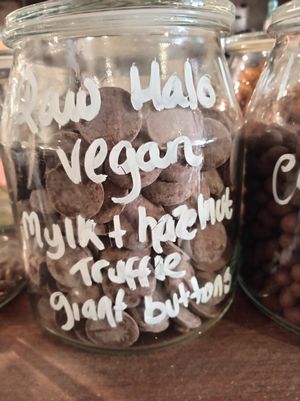 Raw Halo
vegan
Mylk + hazelnut
Truffle
giant buttons
C